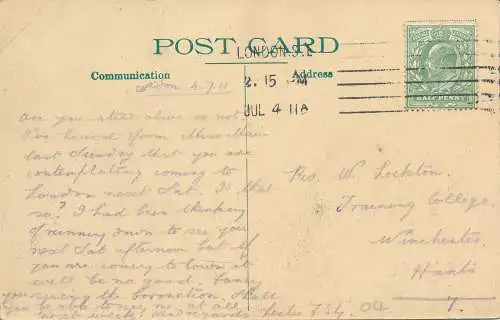 POST CARD
Communication
Address
LONDON. S.E
2. 15 PM
JUL 4 11
HALF PENNY
London 4.7.11
Are you still alive or not?
I've heard from
last Sunday that you are
contemplating coming to
London next Sat. Is that
so? I had been thinking
of running down to see you
next Sat afternoon but if
you are coming to town it
will be no good. Fancy
you seeing the Coronation. Shall
you be able to see me at all
next week? Kind regards
Mr W. Lockton.
Training College.
Winchester
Hants